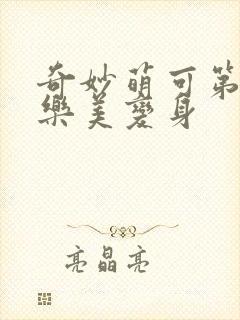 奇妙萌可第
樂美變身
亮晶亮